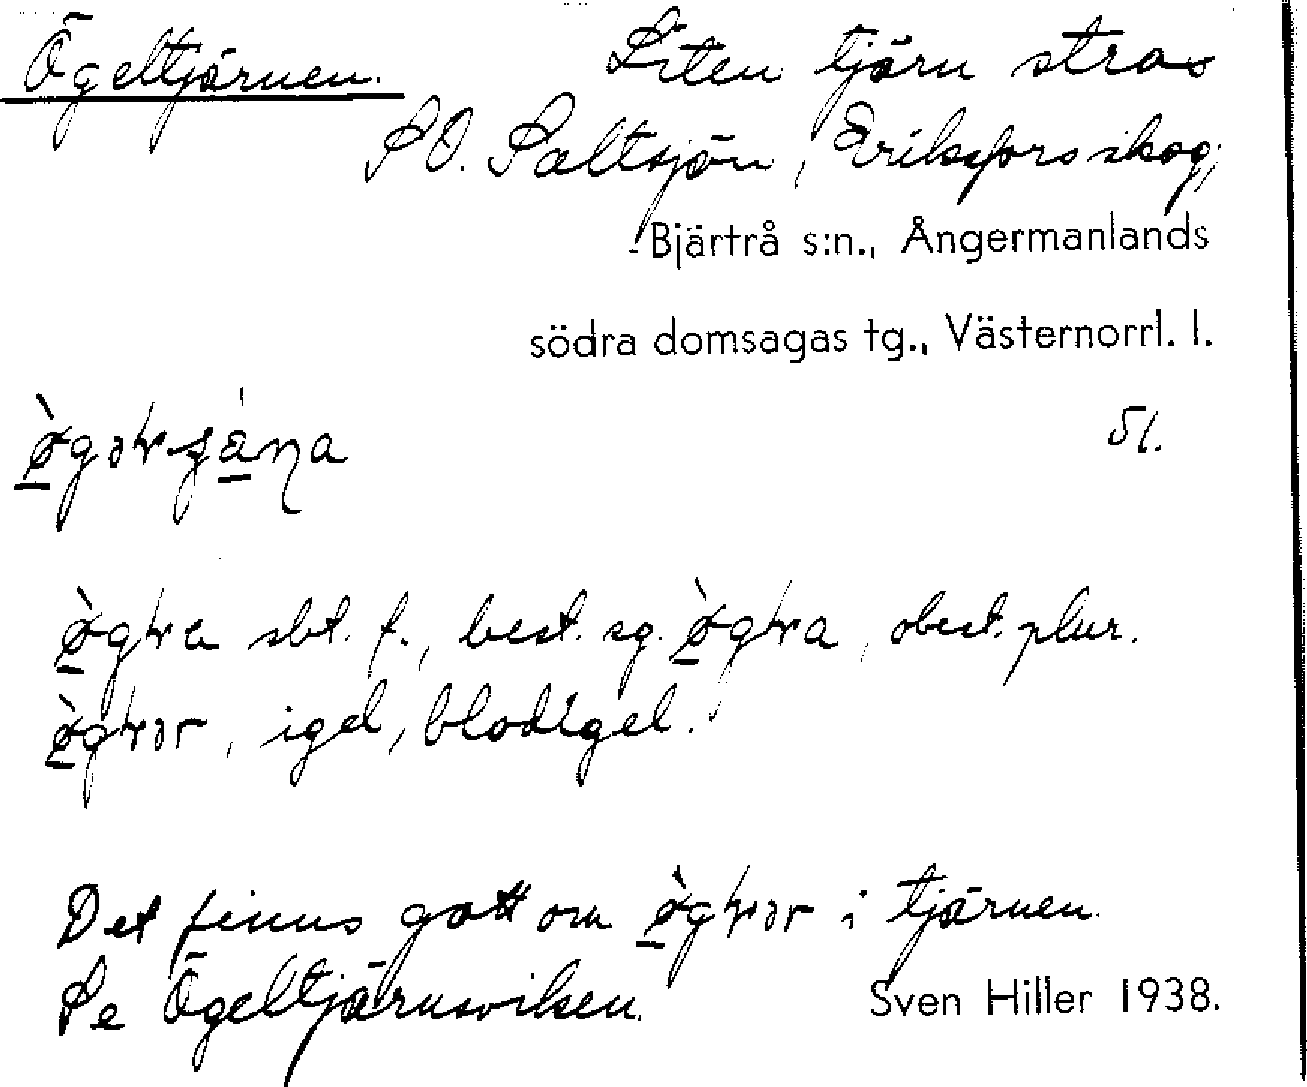 Ögeltjärnen. Liten tjärn strax
S O. Saltsjön, Eriksfors skog,
Bjärtrå s:n., Ångermanlands
södra domsagas tg., Västernorrl. l.
51.
sbt. f., best. sg. , obest. plur.
, igel, blodigel.
Det finns gott om i tjärnen.
Se Ögeltjärnsviken. Sven Hiller 1938.